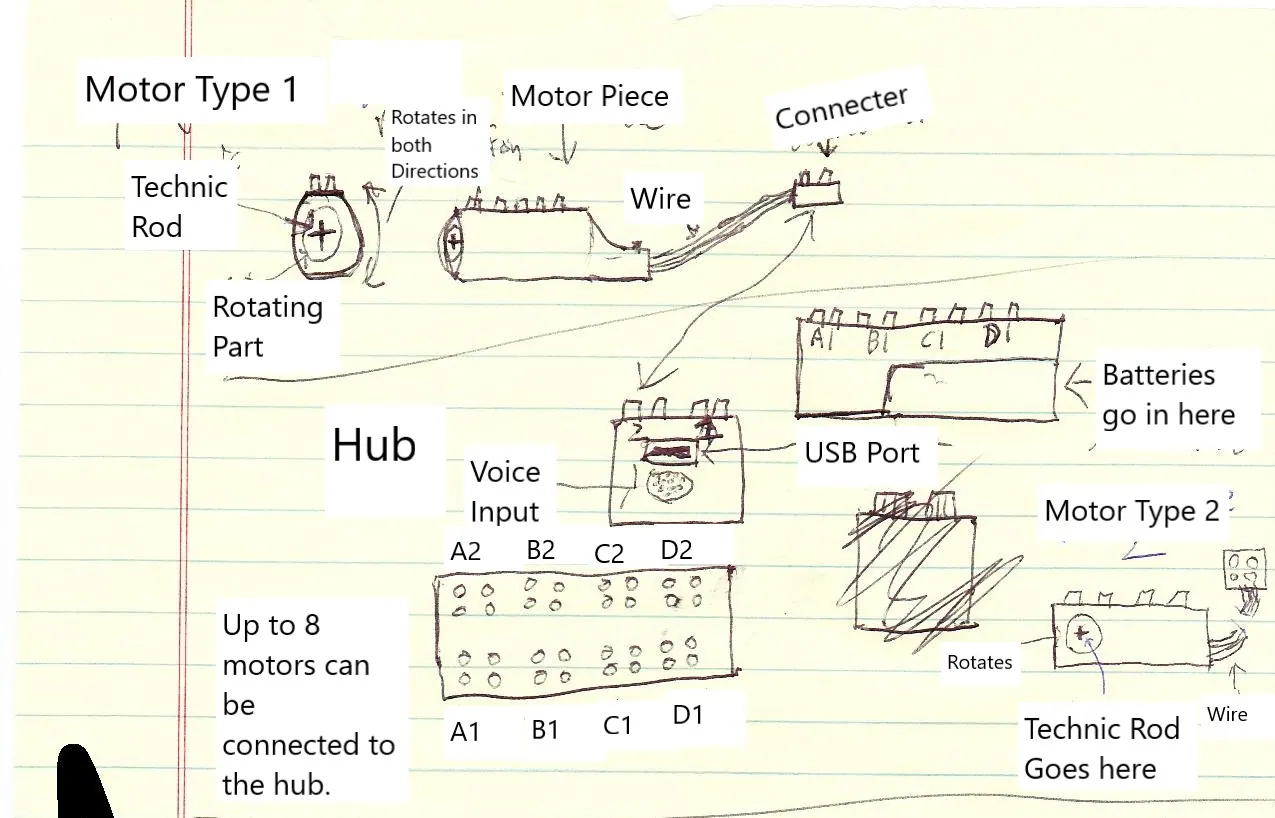 Motor Type 1
Rotates in
both
Directions
Motor Piece
Connecter
Technic
Rod
Wire
Rotating
Part
A1 B1 C1 D1
Batteries
go in here
Hub
USB Port
Voice
Input
Motor Type 2
A2 B2 C2 D2
Up to 8
motors can
be
connected to
the hub.
A1 B1 C1 D1
Rotates
Wire
Technic Rod
Goes here